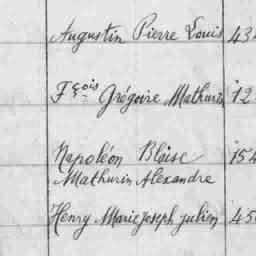 Augustin Pierre Louis 434
Fçois Grégoire Mathurin 12
Napoléon Blaise 154
Mathurin Alexandre
Henry Marie Joseph julien 450